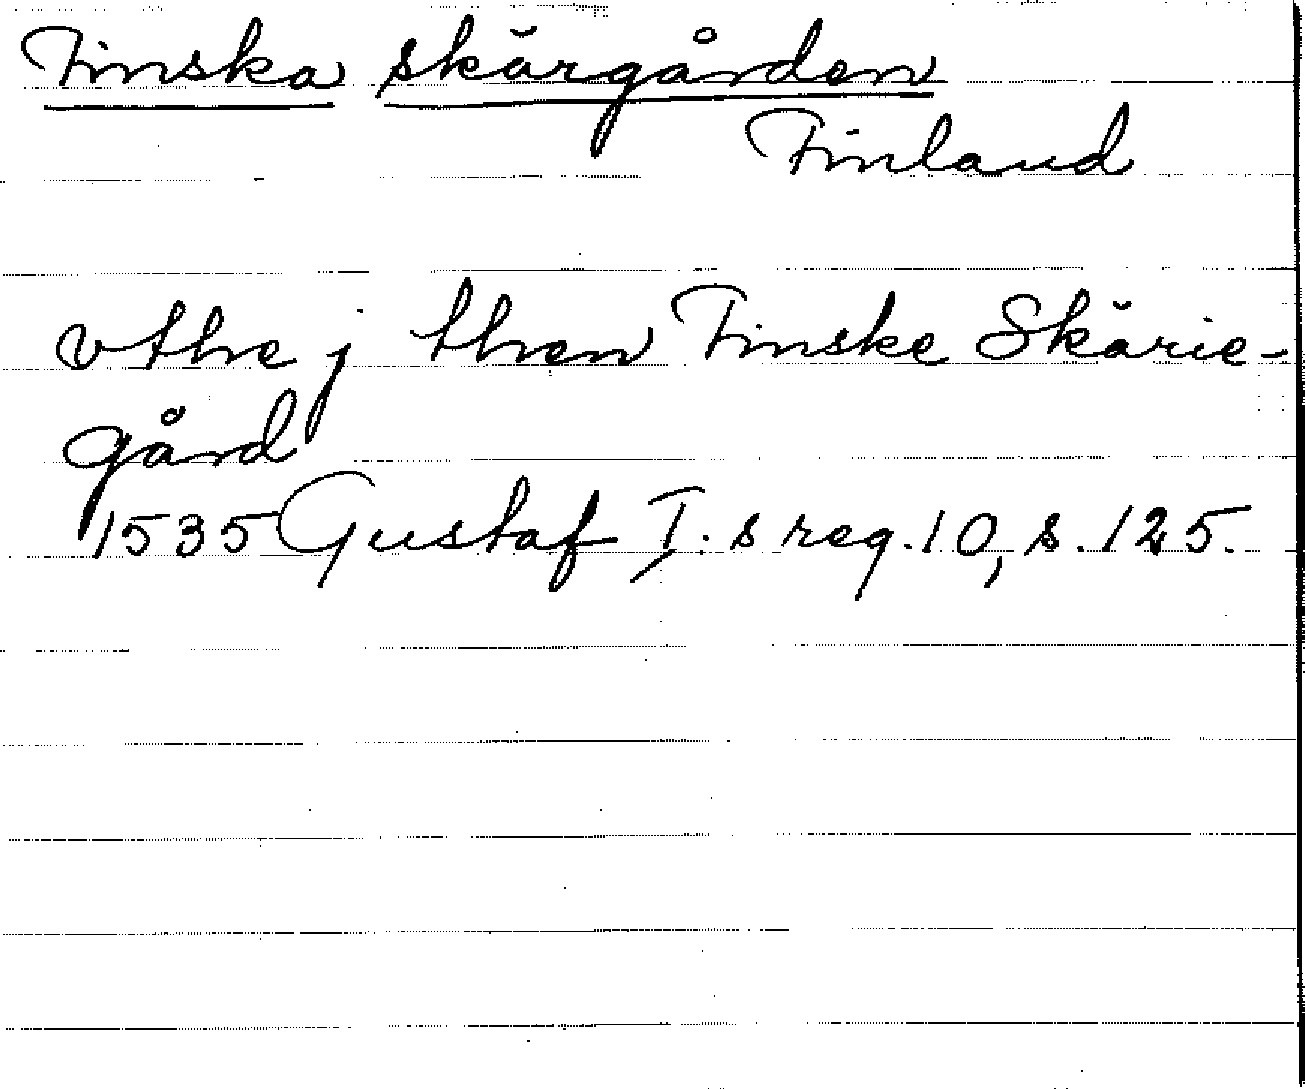 Finska skärgården
Finland
vthe j then Finske Skärie-
gård
1535 Gustaf I.s reg. 10, s. 125.